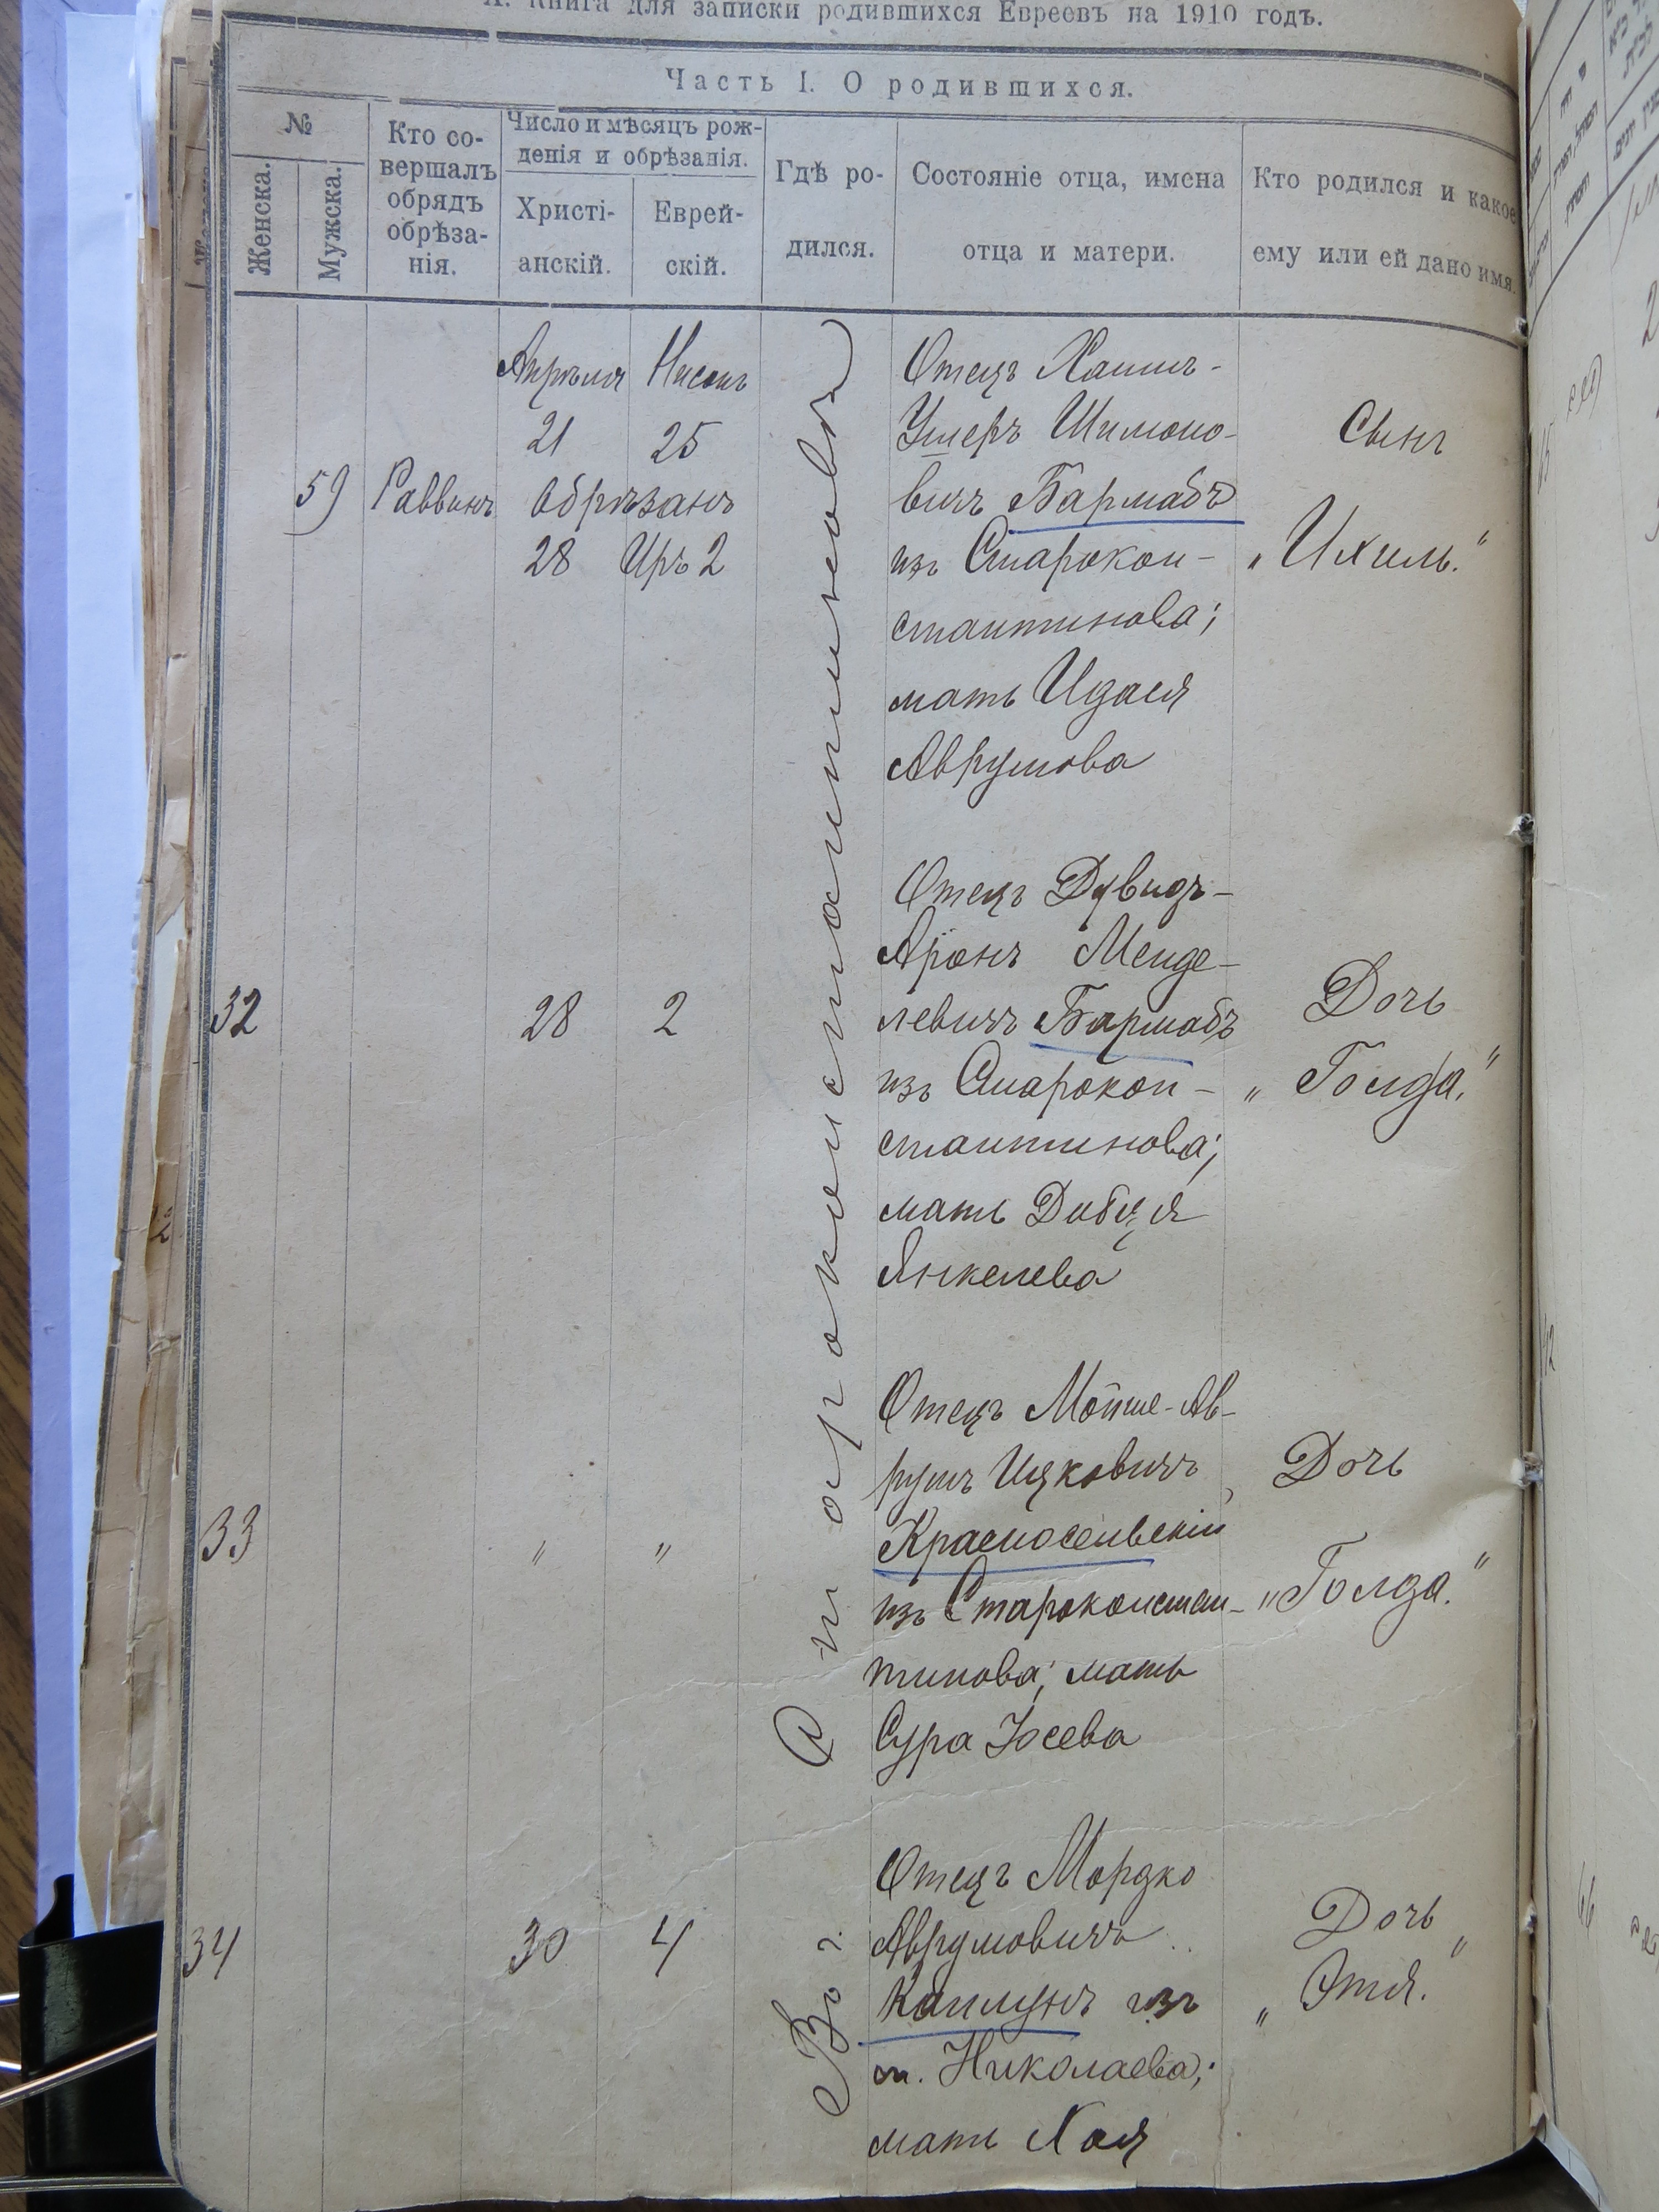 X. Книга для записки родившихся Евреевъ на 1910 годъ.
Часть I. О родившихся.
№
Женска.
Мужска.
Кто со-
вершалъ
обрядъ
обрѣза-
нія.
Число и мѣсяцъ рож-
денія и обрѣзанія.
Христі-
анскій.
Еврей-
скій.
Гдѣ ро-
дился.
Состояніе отца, имена
отца и матери.
Кто родился и какое
ему или ей дано имя.
Въ г. Староконстантиновѣ
59
Раввинъ
Апрѣля Нисонъ
21 25
обрѣзанъ
28 Иръ 2
Отецъ Хаимъ-
Ушеръ Шимоно-
вичъ Бармабъ
изъ Старокон-
стантинова;
мать Идася
Аврумова
Сынъ
„Ихиль.“
32
28 2
Отецъ Дувидъ-
Аронъ Менде-
левичъ Бармабъ
изъ Старокон-
стантинова;
мать Добця
Янкелева
Дочь
„Голда.“
33
" "
Отецъ Мойше-Ав-
румъ Ицковичъ
Красносельскій
изъ Староконстан-
тинова; мать
Сура Іосева
Дочь
„Голда.“
34
30 4
Отецъ Мордко
Аврумовичъ
Каплунъ изъ
м. Николаева;
мать Хая
Дочь
„Этя.“